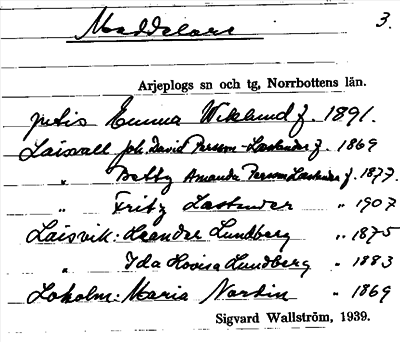 Meddelare
3.
Arjeplogs sn och tg, Norrbottens län.
Emma Wiklund f. 1891.
Laisvall Joh. David Persson-Laestander f. 1869
" Betty Amanda Persson Laestander f. 1877.
" Fritz Laestander " 1907
Laisvik: Leander Lundberg " 1875
" Ida Lovisa Lundberg " 1883
Loholm: Maria Nordin " 1869
Sigvard Wallström, 1939.